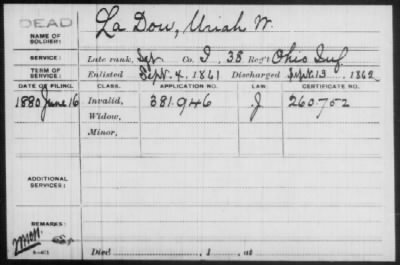 DEAD
NAME OF SOLDIER: La Dow, Uriah W.
SERVICE: Late rank, Co. I, 38 Reg't Ohio Inf.
TERM OF SERVICE: Enlisted Sept. 4, 1861 Discharged Sept. 13, 1862
DATE OF FILING. CLASS. APPLICATION NO. LAW. CERTIFICATE NO.
1880 June 16 Invalid, 381.946 J 260.752
Widow,
Minor,
ADDITIONAL SERVICES:
REMARKS:
Died , 1 , at